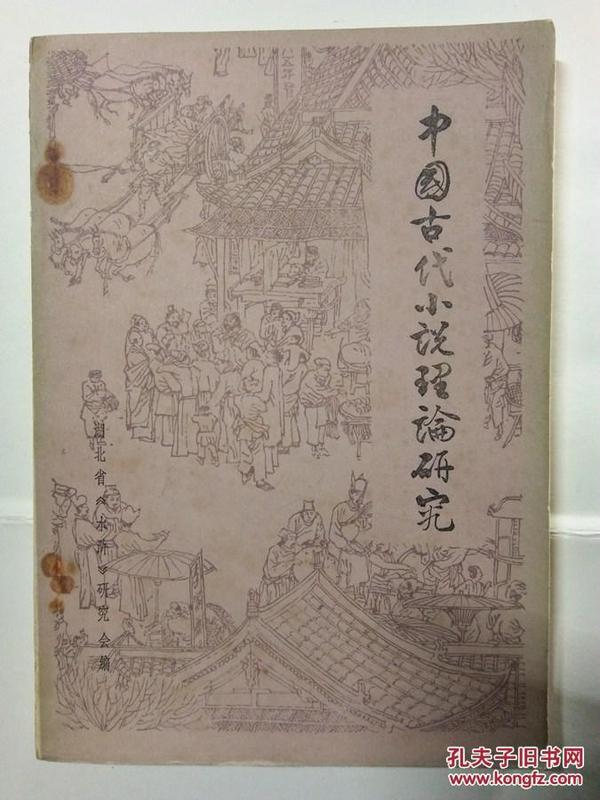 中國古代小说理論研究
湖北省《水浒》研究会编
孔夫子旧书网
www.kongfz.com